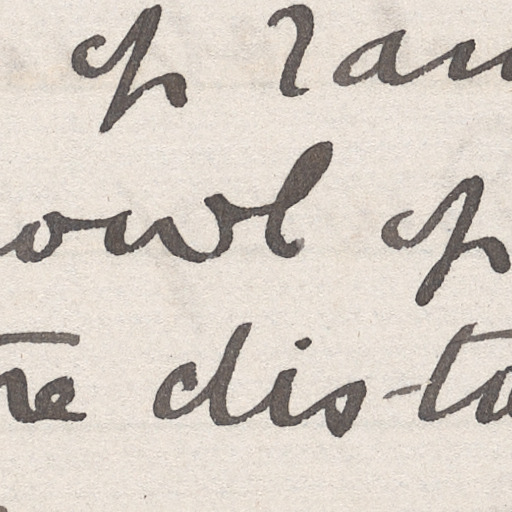 of ran
owl of
the dista